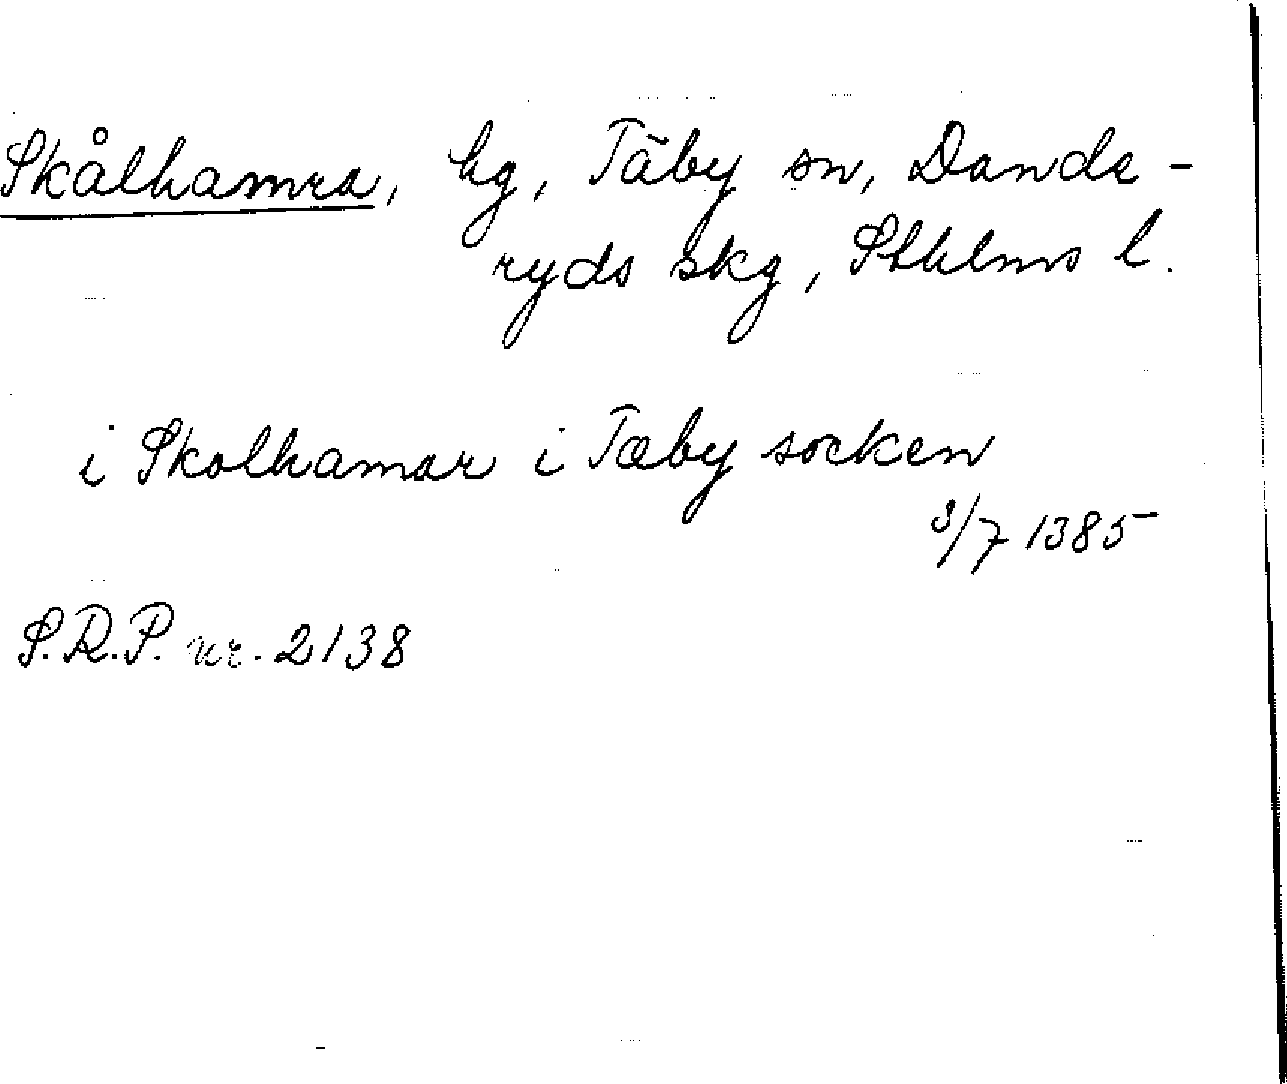 Skålhamra, hg, Täby sn, Dande-
ryds skg, Sthlms l.
i Skolhamar i Tæby socken
3/7 1385
S.R.P. nr. 2138